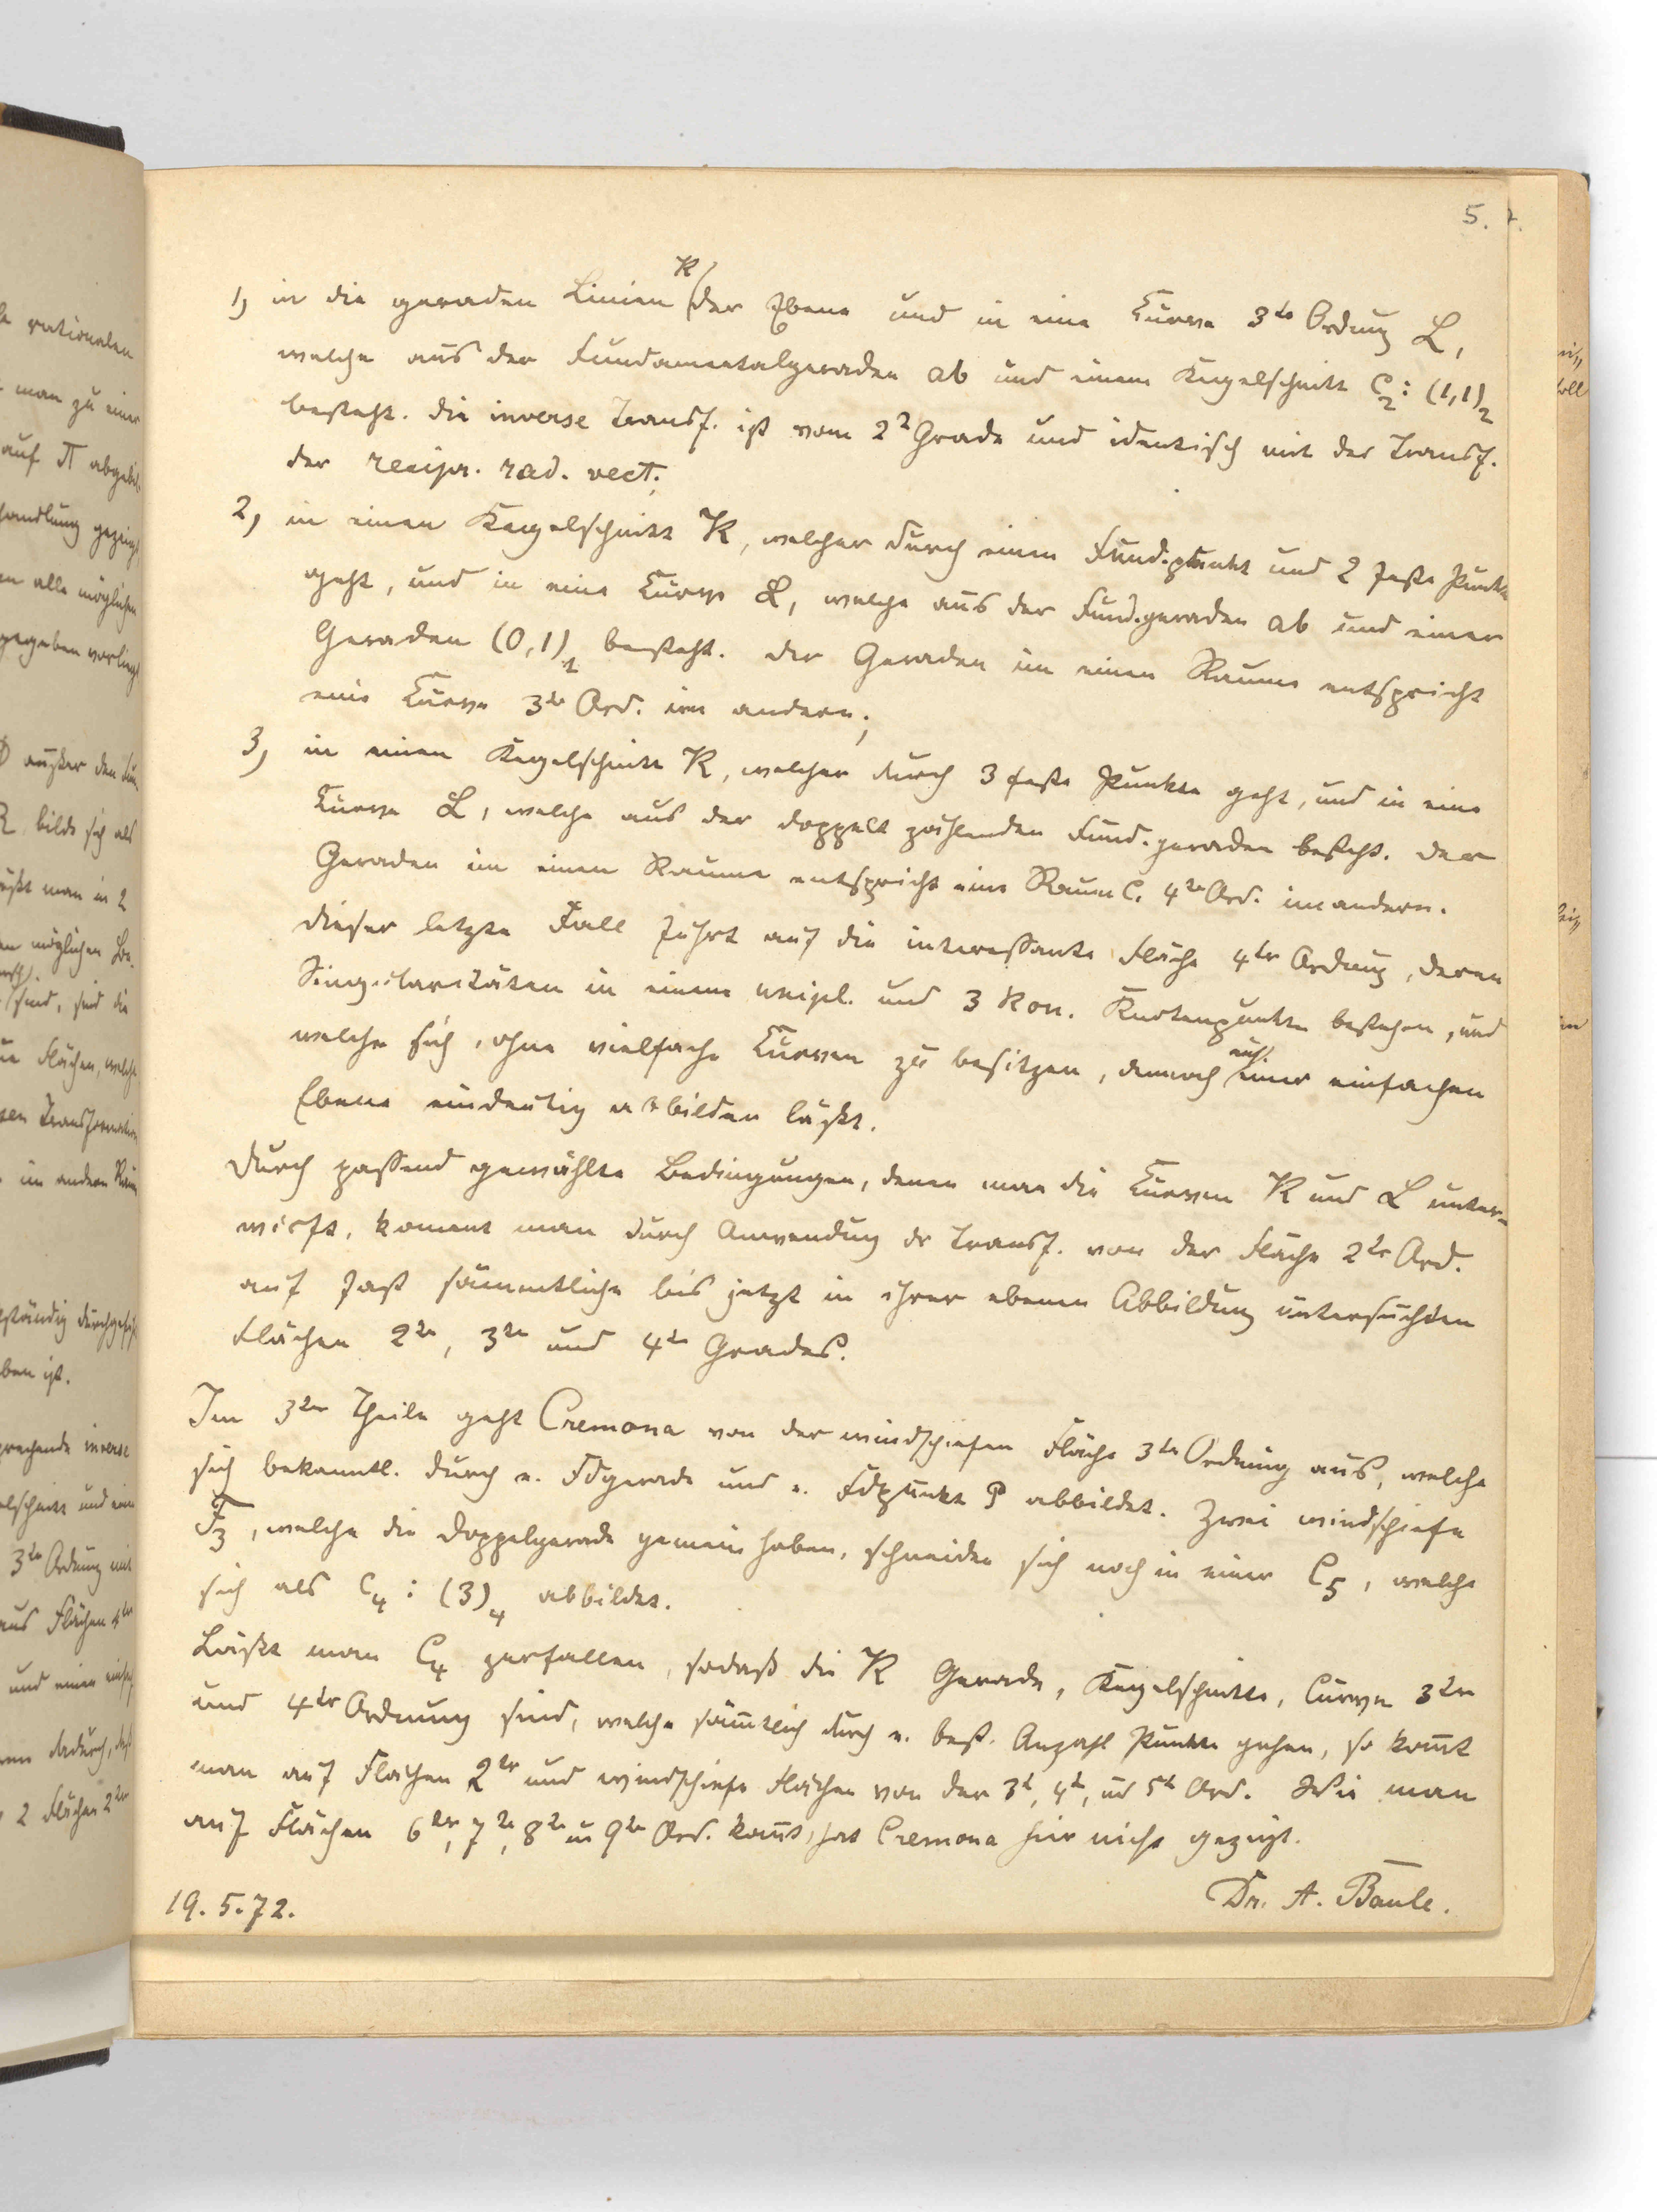 5.
1) in die geraden Linien K der Ebene und in eine Curve 3ter Ordnung L,
welche aus der Fundamentalgeraden ab und einem Kegelschnitt C2: (1,1)2
besteht. Die inverse Transf. ist vom 2t Grade und identisch mit der Transf.
der recipr. rad. vect.;
2) in einen Kegelschnitt K, welcher durch einen Fund.punkt und 2 feste Punkte
geht, und in eine Curve L, welche aus der Fund.geraden ab und einer
Geraden (0,1)1 besteht. Der Geraden im einen Raume entspricht
eine Curve 3ter Ord. im andern;
3) in einen Kegelschnitt K, welcher durch 3 feste Punkte geht, und in eine
Curve L, welche aus der doppelt zählenden Fund.geraden besteht. Der
Geraden im einen Raume entspricht eine Raum C. 4ter Ord. im andern.
Dieser letzte Fall führt auf die interessante Fläche 4ter Ordnung, deren
Singularitäten in einem unipl. und 3 kon. Knotenpunkten bestehen, und
welche sich, ohne vielfache Curven zu besitzen, dennoch auf einer einfachen
Ebene eindeutig abbilden läßt.
Durch passend gewählte Bedingungen, denen man die Curven K und L unter-
wirft, kommt man durch Anwendung dr Transf. von der Fläche 2ter Ord.
auf fast sämmtliche bis jetzt in ihrer ebenen Abbildung untersuchten
Flächen 2ten, 3ten und 4ten Grades.
Im 3ten Theile geht Cremona von der windschiefen Fläche 3ter Ordnung aus, welche
sich bekanntl. durch e. Fdgerade und e. Fdpunkt P abbildet. Zwei windschiefe
F3, welche die Doppelgerade gemein haben, schneiden sich noch in einer C5, welche
sich als C4: (3)4 abbildet.
Läßt man C4 zerfallen, sodaß die K Gerade, Kegelschnitte, Curven 3ter
und 4ter Ordnung sind, welche sämtlich durch e. best. Anzahl Punkte gehen, so komt
man auf Flächen 2ter und windschiefe Flächen von der 3t, 4t, ud 5t Ord. Wie man
auf Flächen 6ter, 7ter, 8ter u 9ter Ord. komt, hat Cremona hier nicht gezeigt.
19.5.72.
Dr. A. Baule.